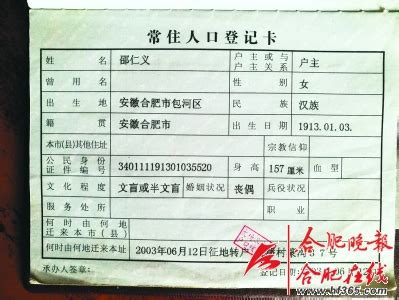 常住人口登记卡
姓 名 邵仁义 户主或与户主关系 户主
曾用名 性 别 女
出生地 安徽合肥市包河区 民 族 汉族
籍 贯 安徽合肥市 出生日期 1913.01.03.
本市(县)其他住址 宗教信仰
公民身份证件编号 340111191301035520 身高 157厘米 血型
文化程度 文盲或半文盲 婚姻状况 丧偶 兵役状况
服务处所 职业
何时由何地迁来本市(县)
何时由何地迁来本址 2003年06月12日征地转户
承办人签章: 登记日期:
合肥晚报
合肥在线
www.hf365.com